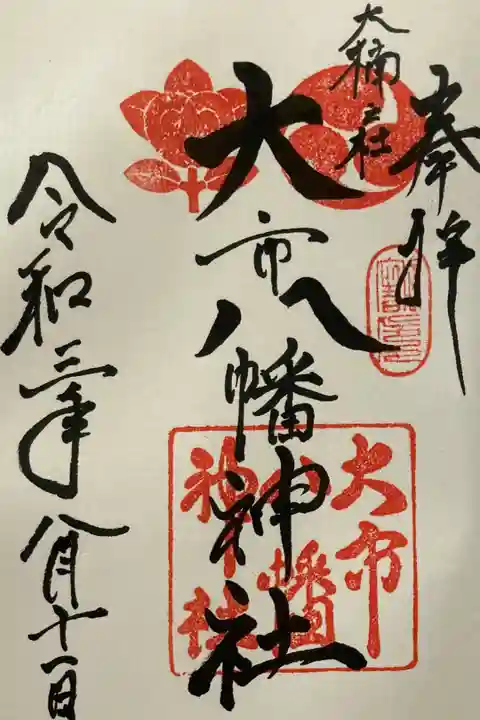 奉拝
大楠社
大市八幡神社
大市
八幡
神社
令和三年八月十一日